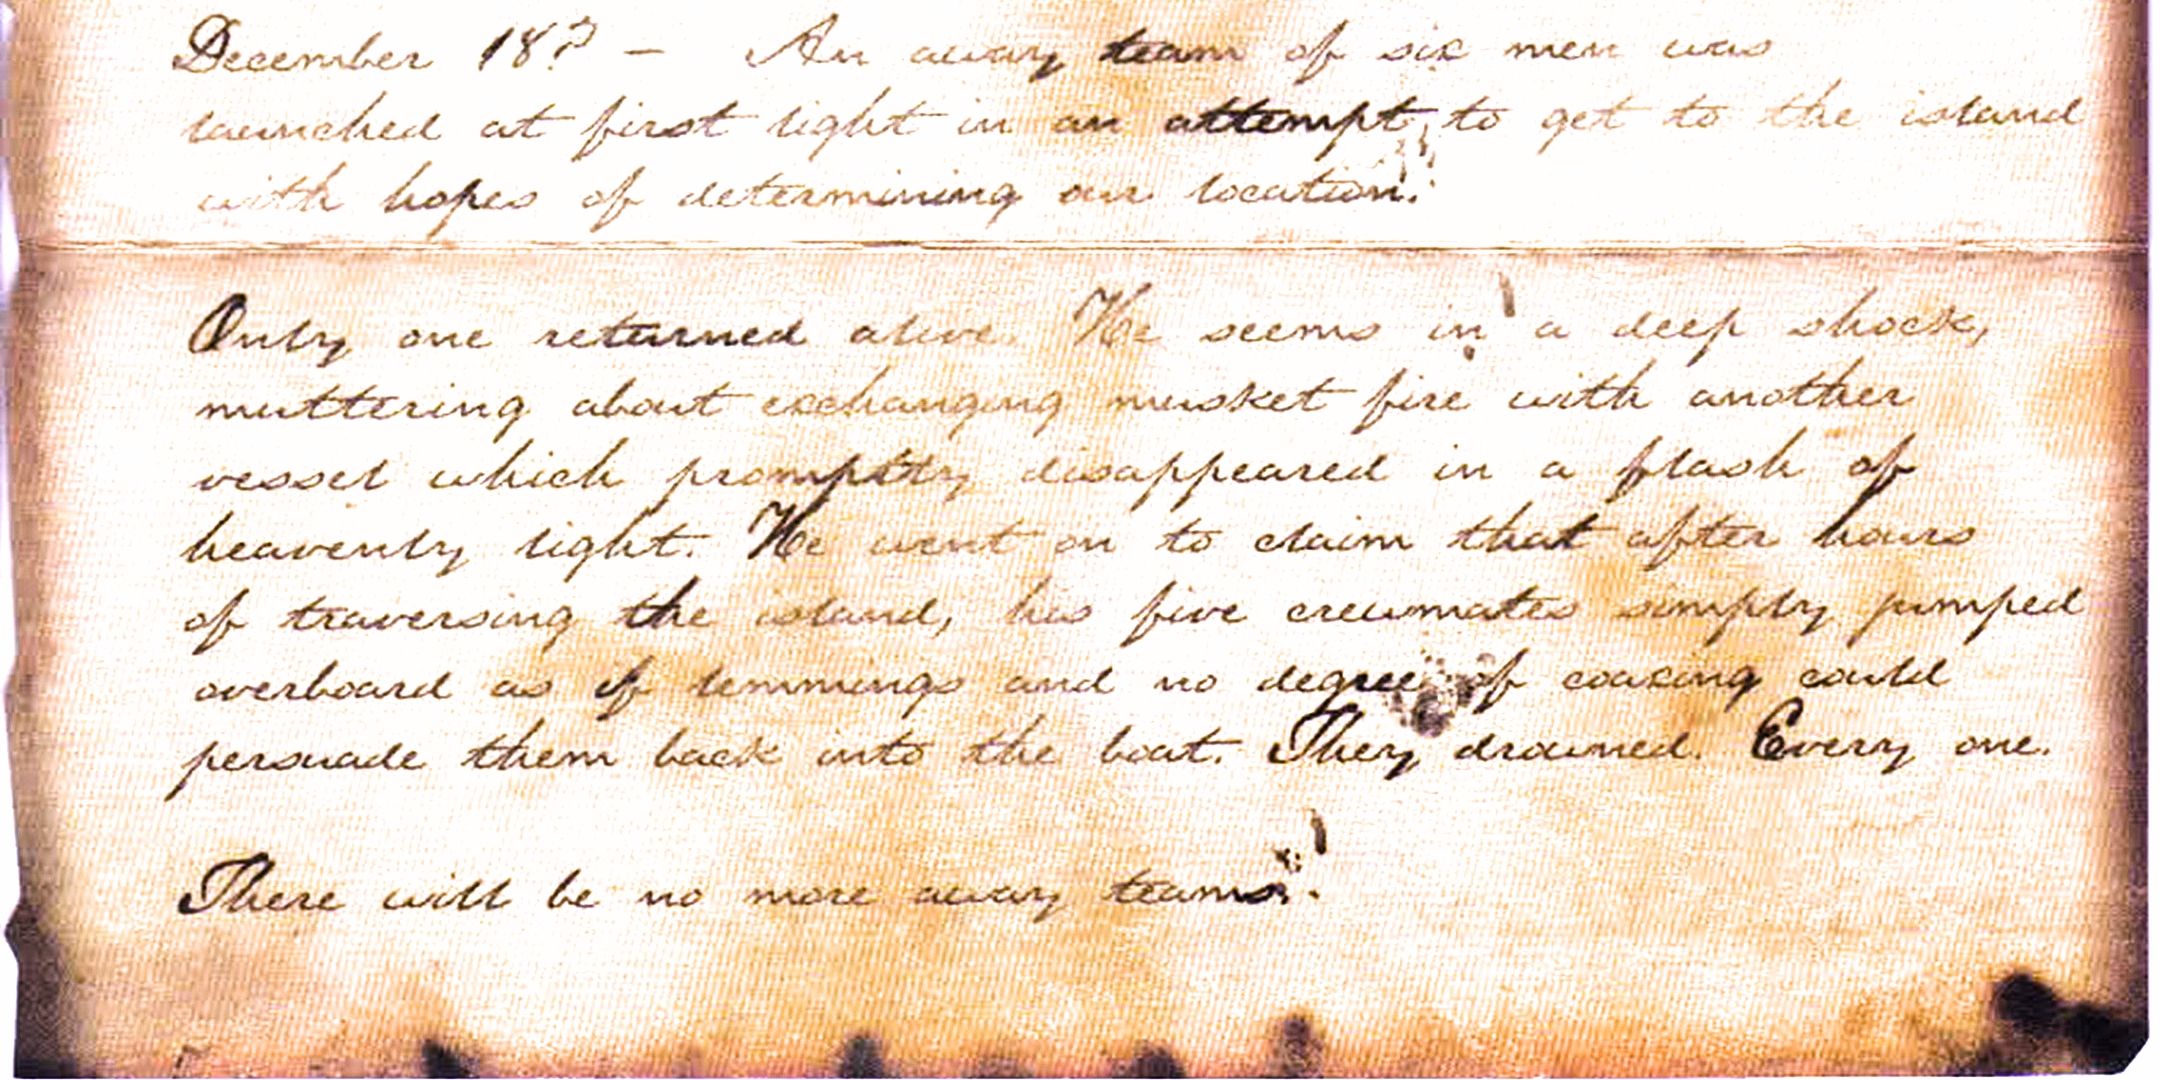 December 18? — An away team of six men was
launched at first light in an attempt to get to the island
with hopes of determining our location.
Only one returned alive. He seems in a deep shock,
muttering about exchanging musket fire with another
vessel which promptly disappeared in a flash of
heavenly light. He went on to claim that after hours
of traversing the island, his five crewmates simply jumped
overboard as if lemmings and no degree of coaxing could
persuade them back into the boat. They drowned. Every one.
There will be no more away teams.